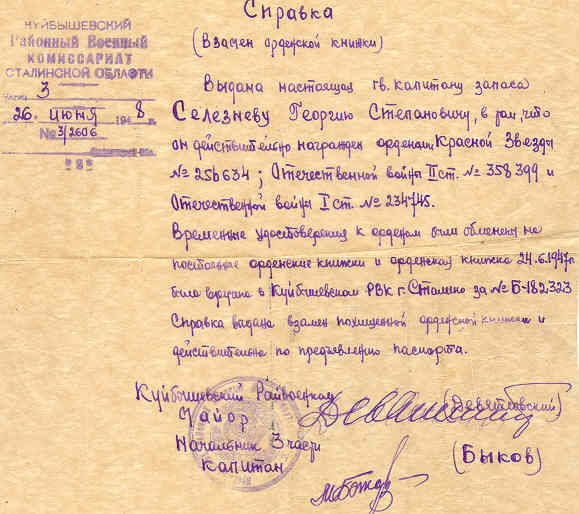 Справка
(Взамен орденской книжки)
КУЙБЫШЕВСКИЙ
Районный Военный
КОМИССАРИАТ
СТАЛИНСКОЙ ОБЛАСТИ
Часть 3
26. июня 1948 г.
№ 3/2606
Выдана настоящая гв. капитану запаса
Селезневу Георгию Степановичу, в том, что
он действительно награжден орденами Красной Звезды
№ 256634; Отечественной войны II ст. № 358399 и
Отечественной войны I ст. № 234745.
Временные удостоверения к орденам были обменены на
постоянные орденские книжки и орденская книжка 24.6.1947г.
была вручена в Куйбышевском РВК г. Сталино за № Б-182323
Справка выдана взамен похищенной орденской книжки и
действительна по предъявлению паспорта.
Куйбышевский Райвоенком
Майор
(Девятловский)
Начальник 3 части
Капитан
(Быков)